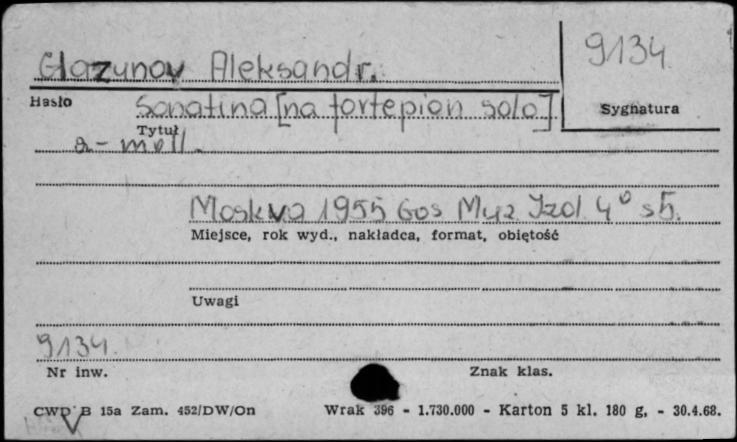 9134
Glazunov Aleksandr.
Hasło
Sonatina [na fortepian solo]
Sygnatura
Tytuł
a-moll.
Moskva 1955 Gos Muz Izd 4° s 5.
Miejsce, rok wyd., nakładca, format, obiętość
Uwagi
9134.
Nr inw.
Znak klas.
CWD B 15a Zam. 452/DW/On Wrak 396 - 1.730.000 - Karton 5 kl. 180 g, - 30.4.68.